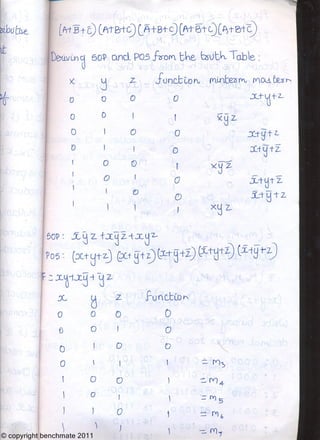 (A+B̅+C̅)(A+B+C̅)(A̅+B+C)(A+B̅+C̅)(A+B+C̅)
Deriving SOP and POS from the truth Table:
x y z function minterm maxterm
0 0 0 0 x+y+z
0 0 1 1 x̅y̅z
0 1 0 0 x+y̅+z
0 1 1 0 x+y̅+z̅
1 0 0 1 xy̅z̅
1 0 1 0 x̅+y+z̅
1 1 0 0 x̅+y̅+z
1 1 1 1 xyz
SOP: x̅y̅z+xy̅z̅+xyz
POS: (x+y+z)(x+y̅+z)(x+y̅+z̅)(x̅+y+z̅)(x̅+y̅+z)
F=xy+xy̅+yz
x y z function
0 0 0 0
0 0 1 0
0 1 0 0
0 1 1 1 = m3
1 0 0 1 = m4
1 0 1 1 = m5
1 1 0 1 = m6
1 1 1 1 = m7
© copyright benchmate 2011